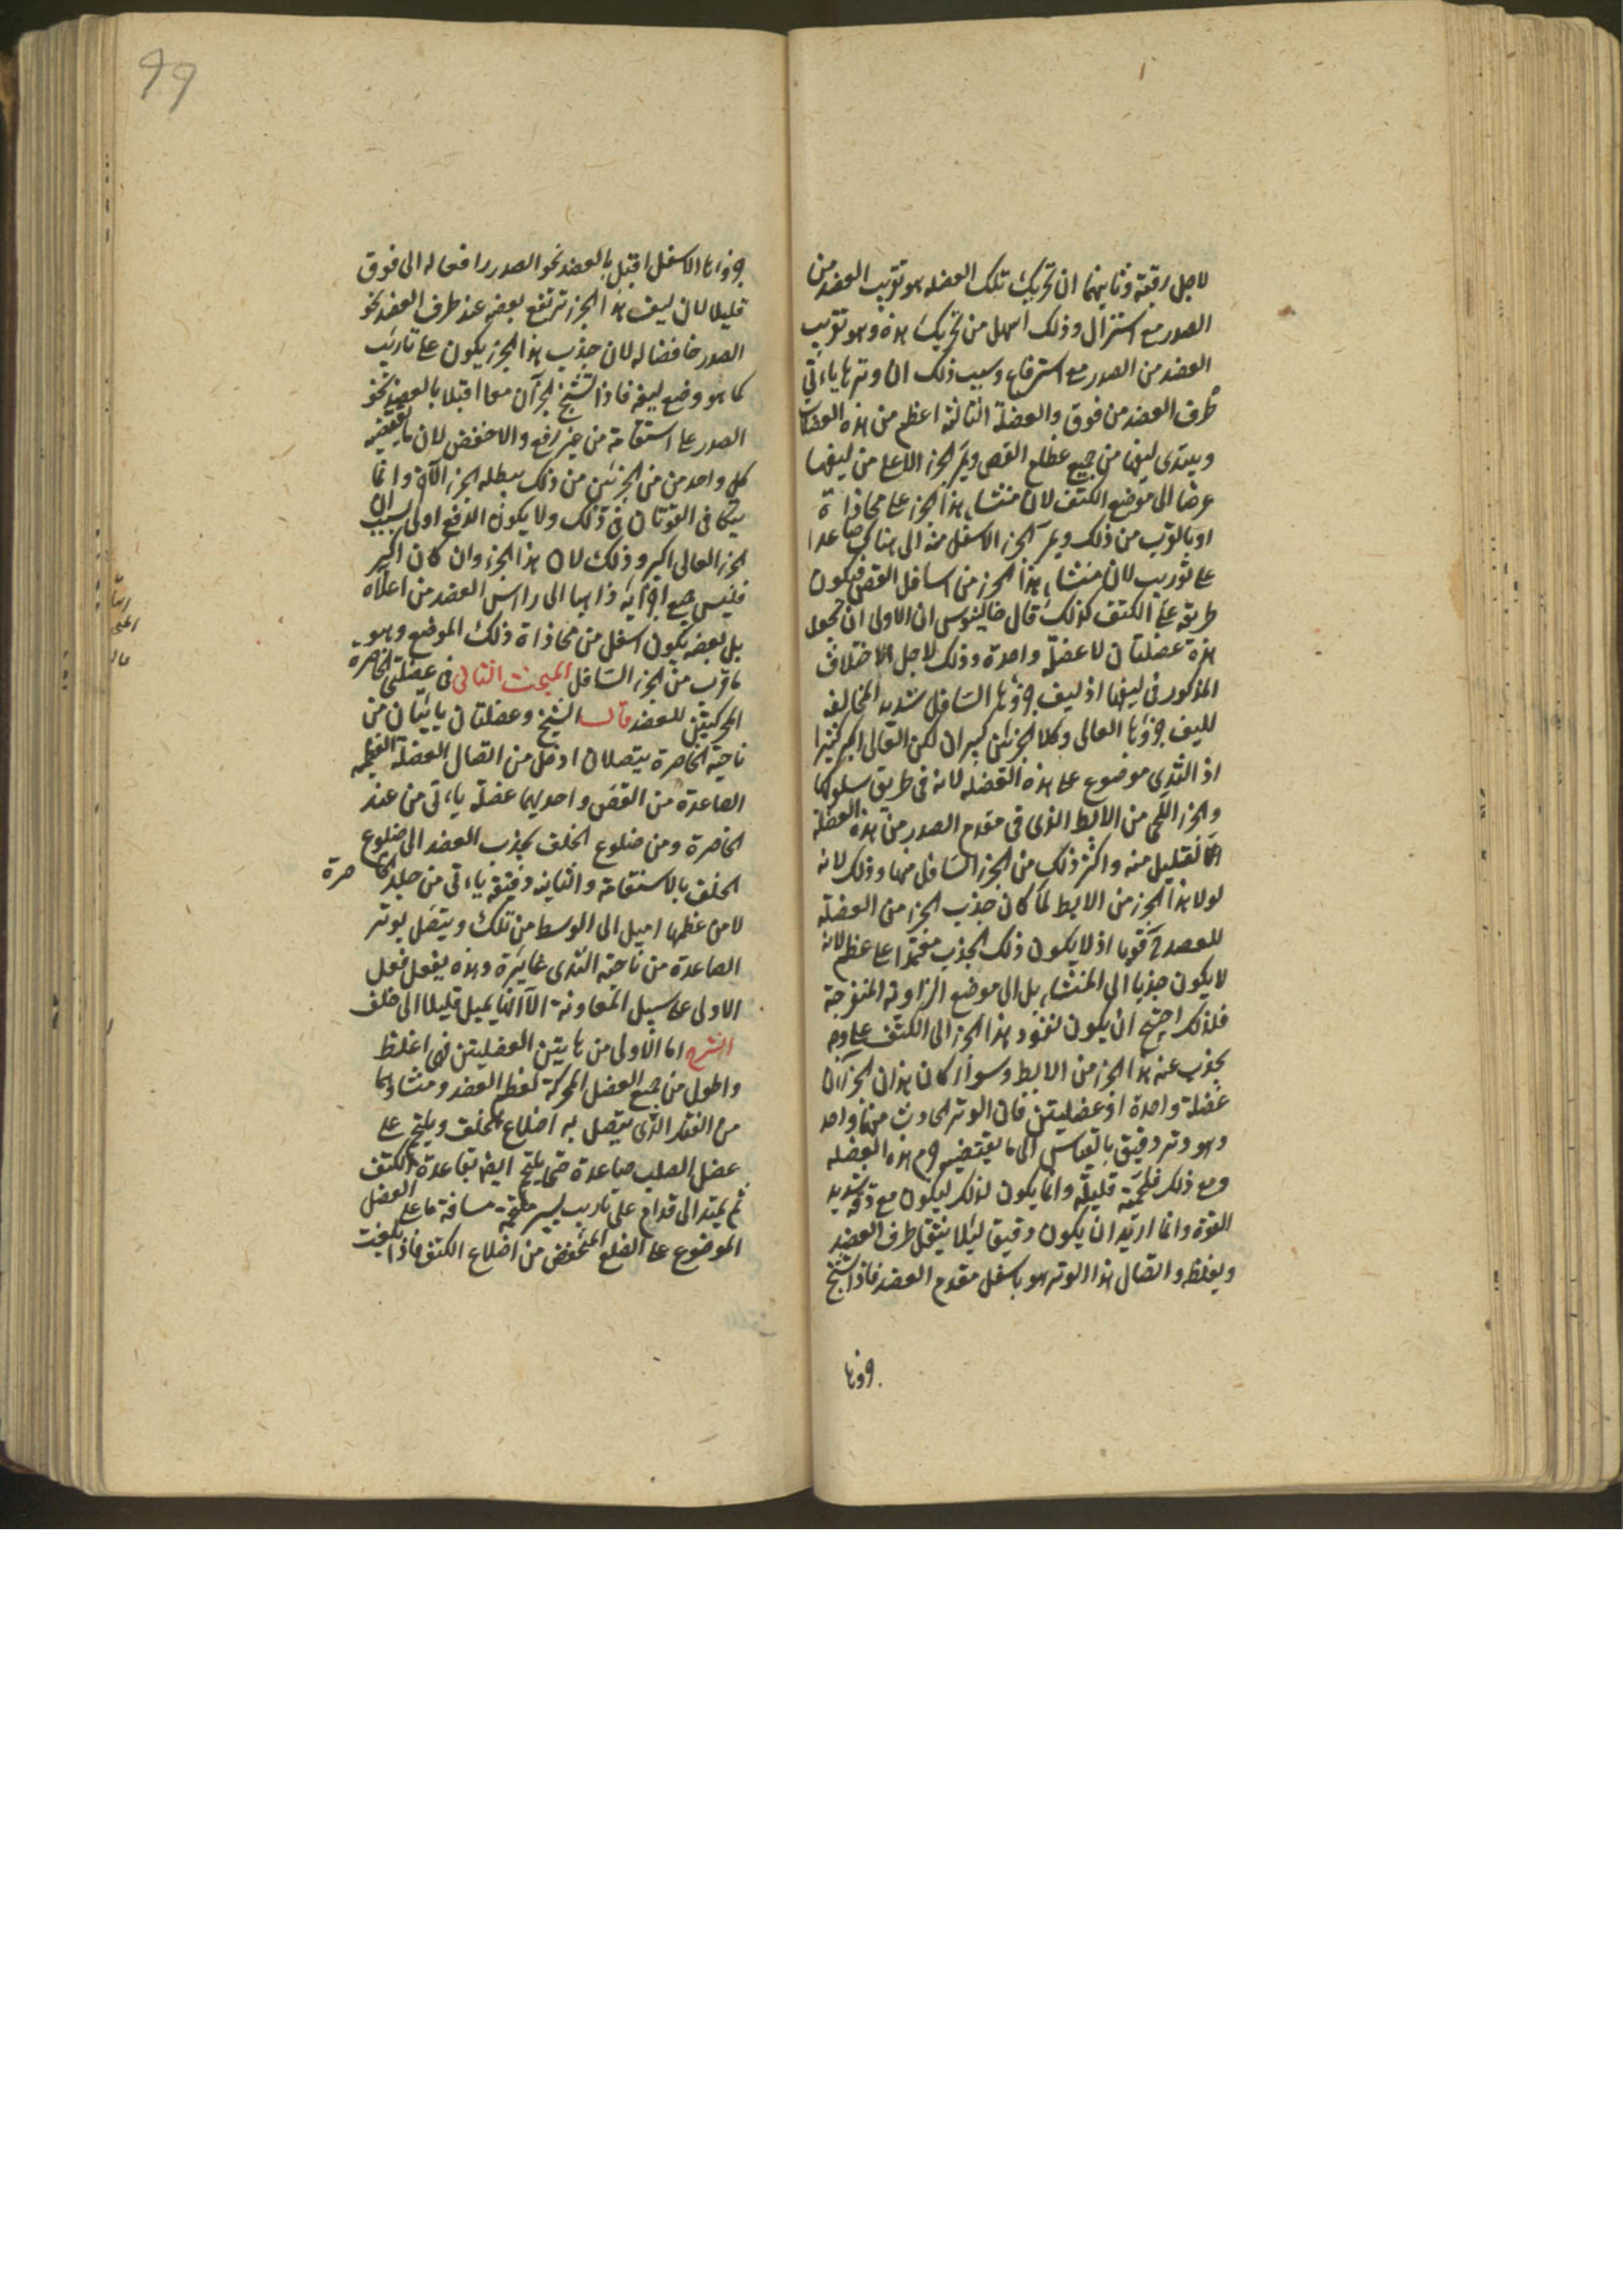 لاجل رقبته وثانيهما ان تحريك تلك العضله هو تقريب العضد من
الصدر مع استنزال وذلك اسهل من تحريك هذه وهو تقريب
العضد من الصدر مع استرفاع وسبب ذلك ان وترها ياءتي
طرف العضد من فوق والعضلة الثالثه اعظم من هذه العضلات
ويبتدى ليفها من جميع عظام القص ويمر الجزء الاعلى من ليفها
عرضا الى موضع الكتف لان منشاء هذا الجزء على محاذاة
او بالقرب من ذلك ويمر الجزء الاسفل منه الى هناك صاعدا
على توريب لان منشاء هذا الجزء من اسافل القص فيكون
طريقه على الكتف كذلك قال جالينوس ان الاولى ان تجعل
هذه عضلتان لا عضلة واحدة وذلك لاجل الاختلاف
المذكور فى ليفها اذ ليف جزؤها السافل شديد المخالفه
لليف جزؤها العالى وكلا الجزئين كبيران لكن العالى اكبر كثيرا
اذ الثدى موضوع على هذه العضله لانه فى طريق سلوكها
والجزء اللحمى من الابط الذى فى مقدم الصدر من هذه العضلة
اما لقليل منه واكثر ذلك من الجزء السافل منها وذلك لانه
لولا هذا الجزء من الابط لما كان جذب الجزء من العضلة
للعضد قويا اذ لا يكون ذلك الجذب معتمدا على عظم لانه
لا يكون جذبا الى المنشاء بل الى موضع الزاويه المنفرجة
فلذلك احتيج ان يكون نفوذ هذا الجزء الى الكتف على وجه
يجذب عنه هذا الجزء من الابط وسواء كان هذان الجزآن
عضلة واحدة او عضليتين فان الوتر الحادث منها واحد
وهو وتر دقيق بالقياس الى ما يقتضيه جرم هذه العضله
ومع ذلك فلحميته قليلة وانما يكون لذلك ليكون مع دقته شديد
القوة وانما اريد ان يكون دقيق ليئلا يثقل طرف العضد
ويغلظه واتصال هذا الوتر هو باسفل مقدم العضد فاذا تشنج
جزؤها
99
جزؤها الاسفل اقبل بالعضد نحو الصدر رافعا له الى فوق
قليلا لان ليف هذا الجزء ترتفع بعضه عند طرف العضد نحو
الصدر خافضا له لان جذب هذا الجزء يكون على تاريب
كما هو وضع ليفه فاذا تشنج الجزآن معا اقبلا بالعضد نحو
الصدر على استقامة من غير رفع ولا خفض لان ما يقتضيه
كل واحد من الجزئين من ذلك يبطله الجزء الآخر وانما
يتكافى القوتان فى ذلك ولا يكون الرفع اولى بسبب ان
الجزء العالى اكبر وذلك لان هذا الجزء وان كان اكبر
فليس جميع اجزآيه ذاهبا الى راس العضد من اعلاه
بل بعضه يكون اسفل من محاذاة ذلك الموضع وهو
ما قرب من الجزء السافل المبحث الثانى فى عضلتى الخاصرة
المحركتين للعضد قال الشيخ وعضلتان ياتيان من
ناحية الخاصرة يتصلان ادخل من اتصال العضلة العظيمه
الصاعدة من القص واحديهما عضلة ياءتى من عند
الخاصرة ومن ضلوع الخلف يجذب العضد الى ضلوع
الخلف بالاستقامة والثانيه دقيقه ياءتى من جلد الخاصرة
لا من عظمها اميل الى الوسط من تلك ويتصل بوتر
الصاعدة من ناحية الثدى غايرة وهذه يفعل فعل
الاولى على سبيل المعاونة الا انها يميل قليلا الى خلف
الشرح اما الاولى من هايتين العضليتين فهى اغلظ
واطول من جميع العضل المحركة لعظم العضد ومنشاؤها
من الفقار الذى يتصل به اضلاع الخلف ويلتحم على
عضل الصلب صاعدة حتى يلتحم ايضا بقاعدة الكتف
ثم يمتد الى قدام على تاريب يسير ملتحمة مسافة ما على العضل
الموضوع على الضلع المنخفض من اضلاع الكتف فاذا بلغت